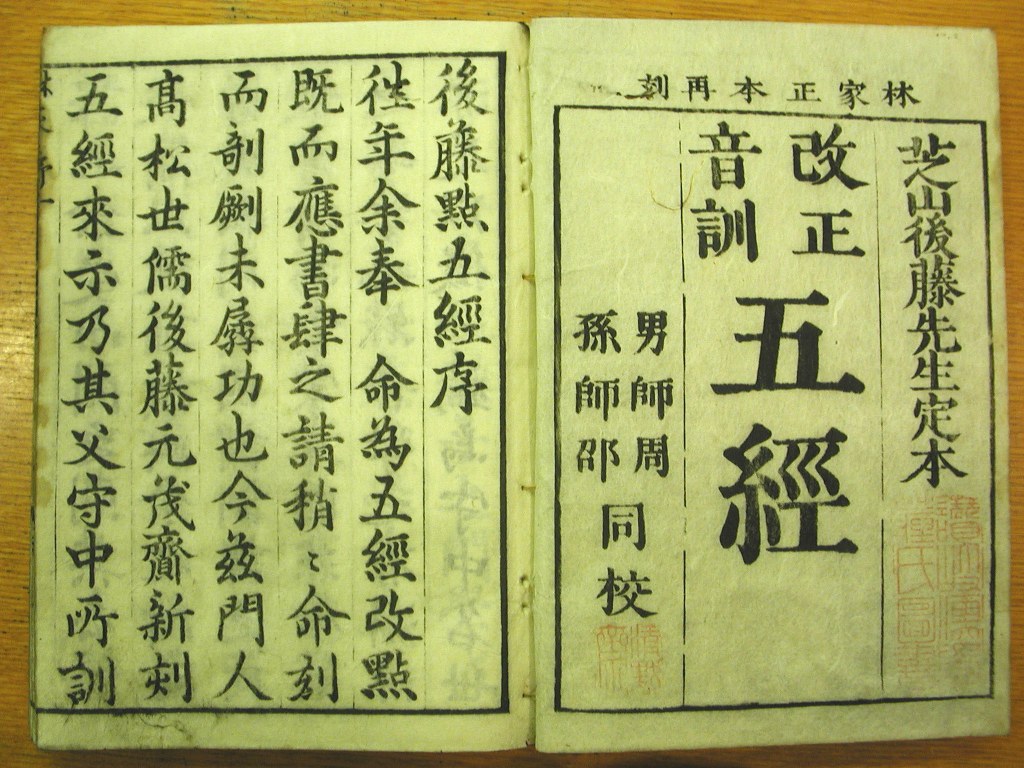 林家正本再刻
芝山後藤先生定本
改正
音訓
五經
男師周
孫師邵
同校
後藤點五經序
徃年余奉 命為五經改點
既而應書肆之請稍〻命刻
而剞劂未孱功也今茲門人
髙松世儒後藤元茂齎新刻
五經來示乃其父守中所訓